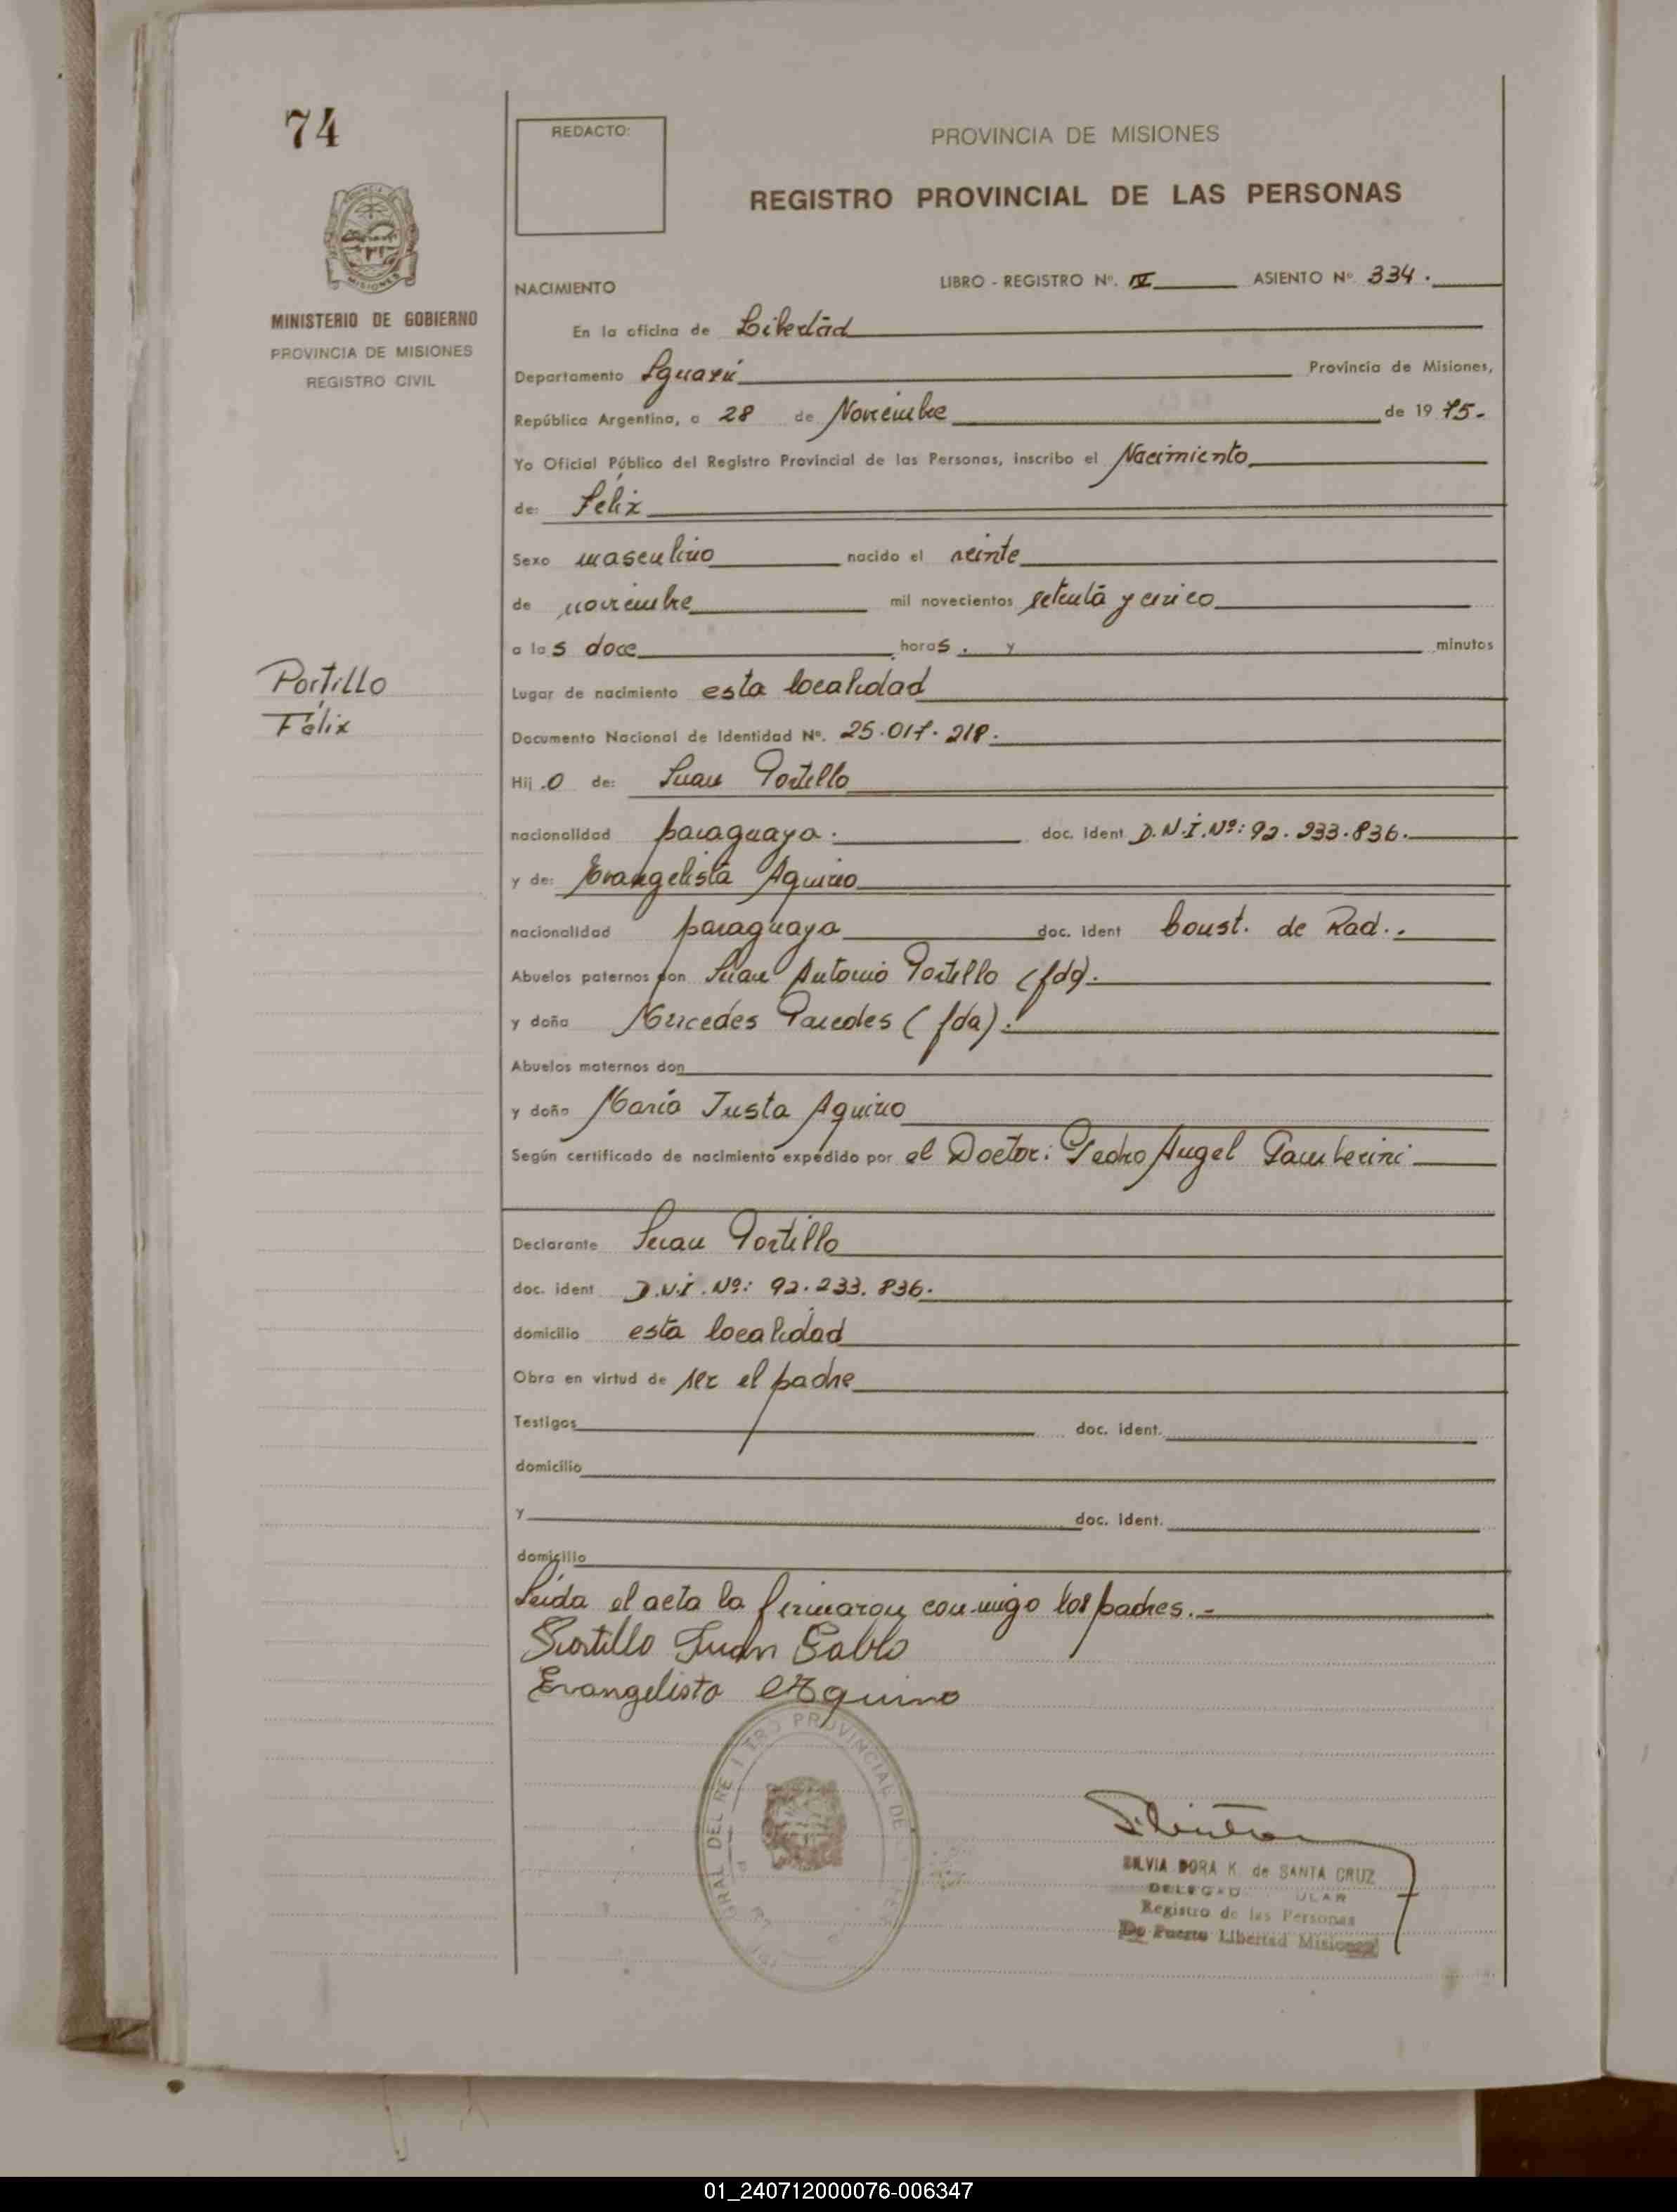 74
REDACTO:
PROVINCIA DE MISIONES
REGISTRO PROVINCIAL DE LAS PERSONAS
MISIONES
MINISTERIO DE GOBIERNO
PROVINCIA DE MISIONES
REGISTRO CIVIL
NACIMIENTO LIBRO - REGISTRO Nº. IV ASIENTO Nº 334.
En la oficina de Libertad
Departamento Iguazú Provincia de Misiones,
República Argentina, a 28 de Noviembre de 1975.-
Yo Oficial Público del Registro Provincial de las Personas, inscribo el Nacimiento
de: Félix
Sexo masculino nacido el veinte
de noviembre mil novecientos setenta y cinco
a las doce horas. y minutos
Portillo
Félix
Lugar de nacimiento esta localidad
Documento Nacional de Identidad Nº. 25.017.218.
Hijo de: Juan Portillo
nacionalidad paraguaya. doc. ident D.N.I.Nº: 92.233.836.
y de: Evangelista Aquino
nacionalidad paraguaya doc. ident Const. de Rad..
Abuelos paternos don Juan Antonio Portillo (fdo).
y doña Mercedes Paredes (fda).
Abuelos maternos don
y doña María Justa Aquino
Según certificado de nacimiento expedido por el Doctor: Pedro Angel Gamberini
Declarante Juan Portillo
doc. ident D.N.I.Nº: 92.233.836.
domicilio esta localidad
Obra en virtud de ser el padre
Testigos doc. ident.
domicilio
y doc. ident.
domicilio
Leída el acta la firmaron conmigo los padres.-
Portillo Juan Pablo
Evangelista Aquino
PROVINCIAL DE
SILVIA DORA K. de SANTA CRUZ
Registro de las Personas
De Puerto Libertad Misiones
01_240712000076-006347